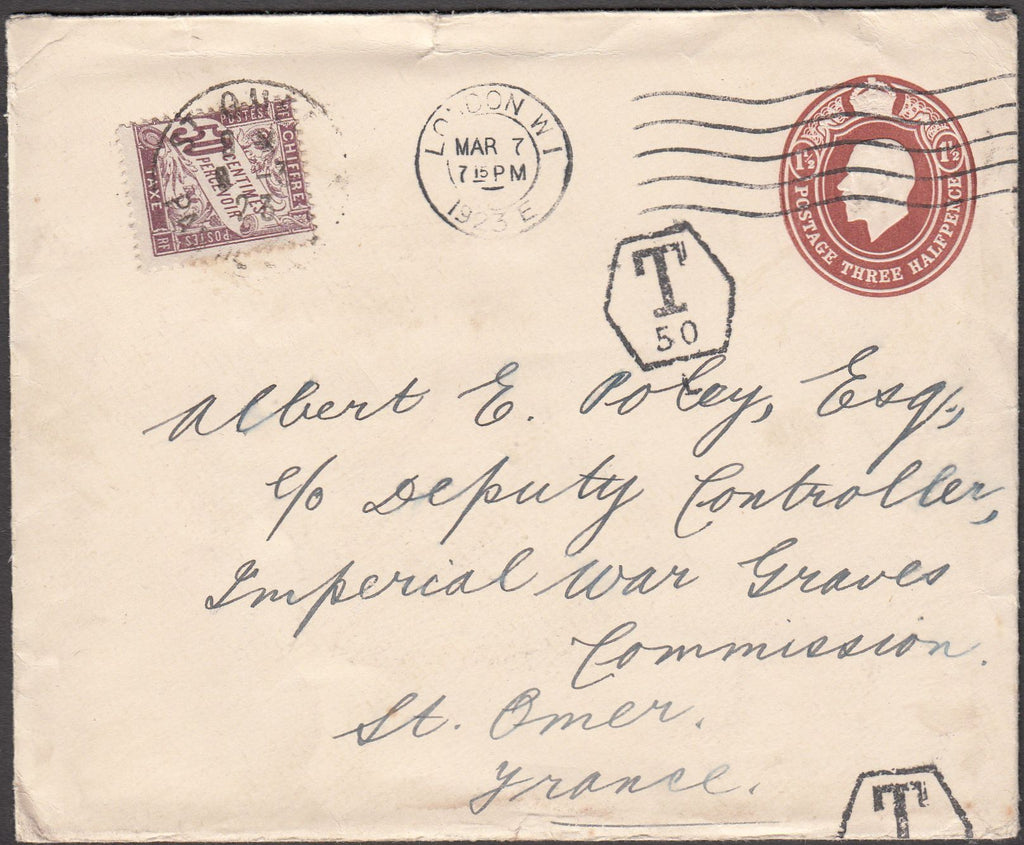 POSTES
50
CENTIMES
A
PERCEVOIR
CHIFFRE
TAXE
POSTES
RF
LONDON W1
MAR 7
7 15 PM
1923 E
1½ 1½
POSTAGE THREE HALFPENCE
T
50
Albert E. Poley, Esq.,
c/o Deputy Controller,
Imperial War Graves
Commission.
St. Omer.
France.
T